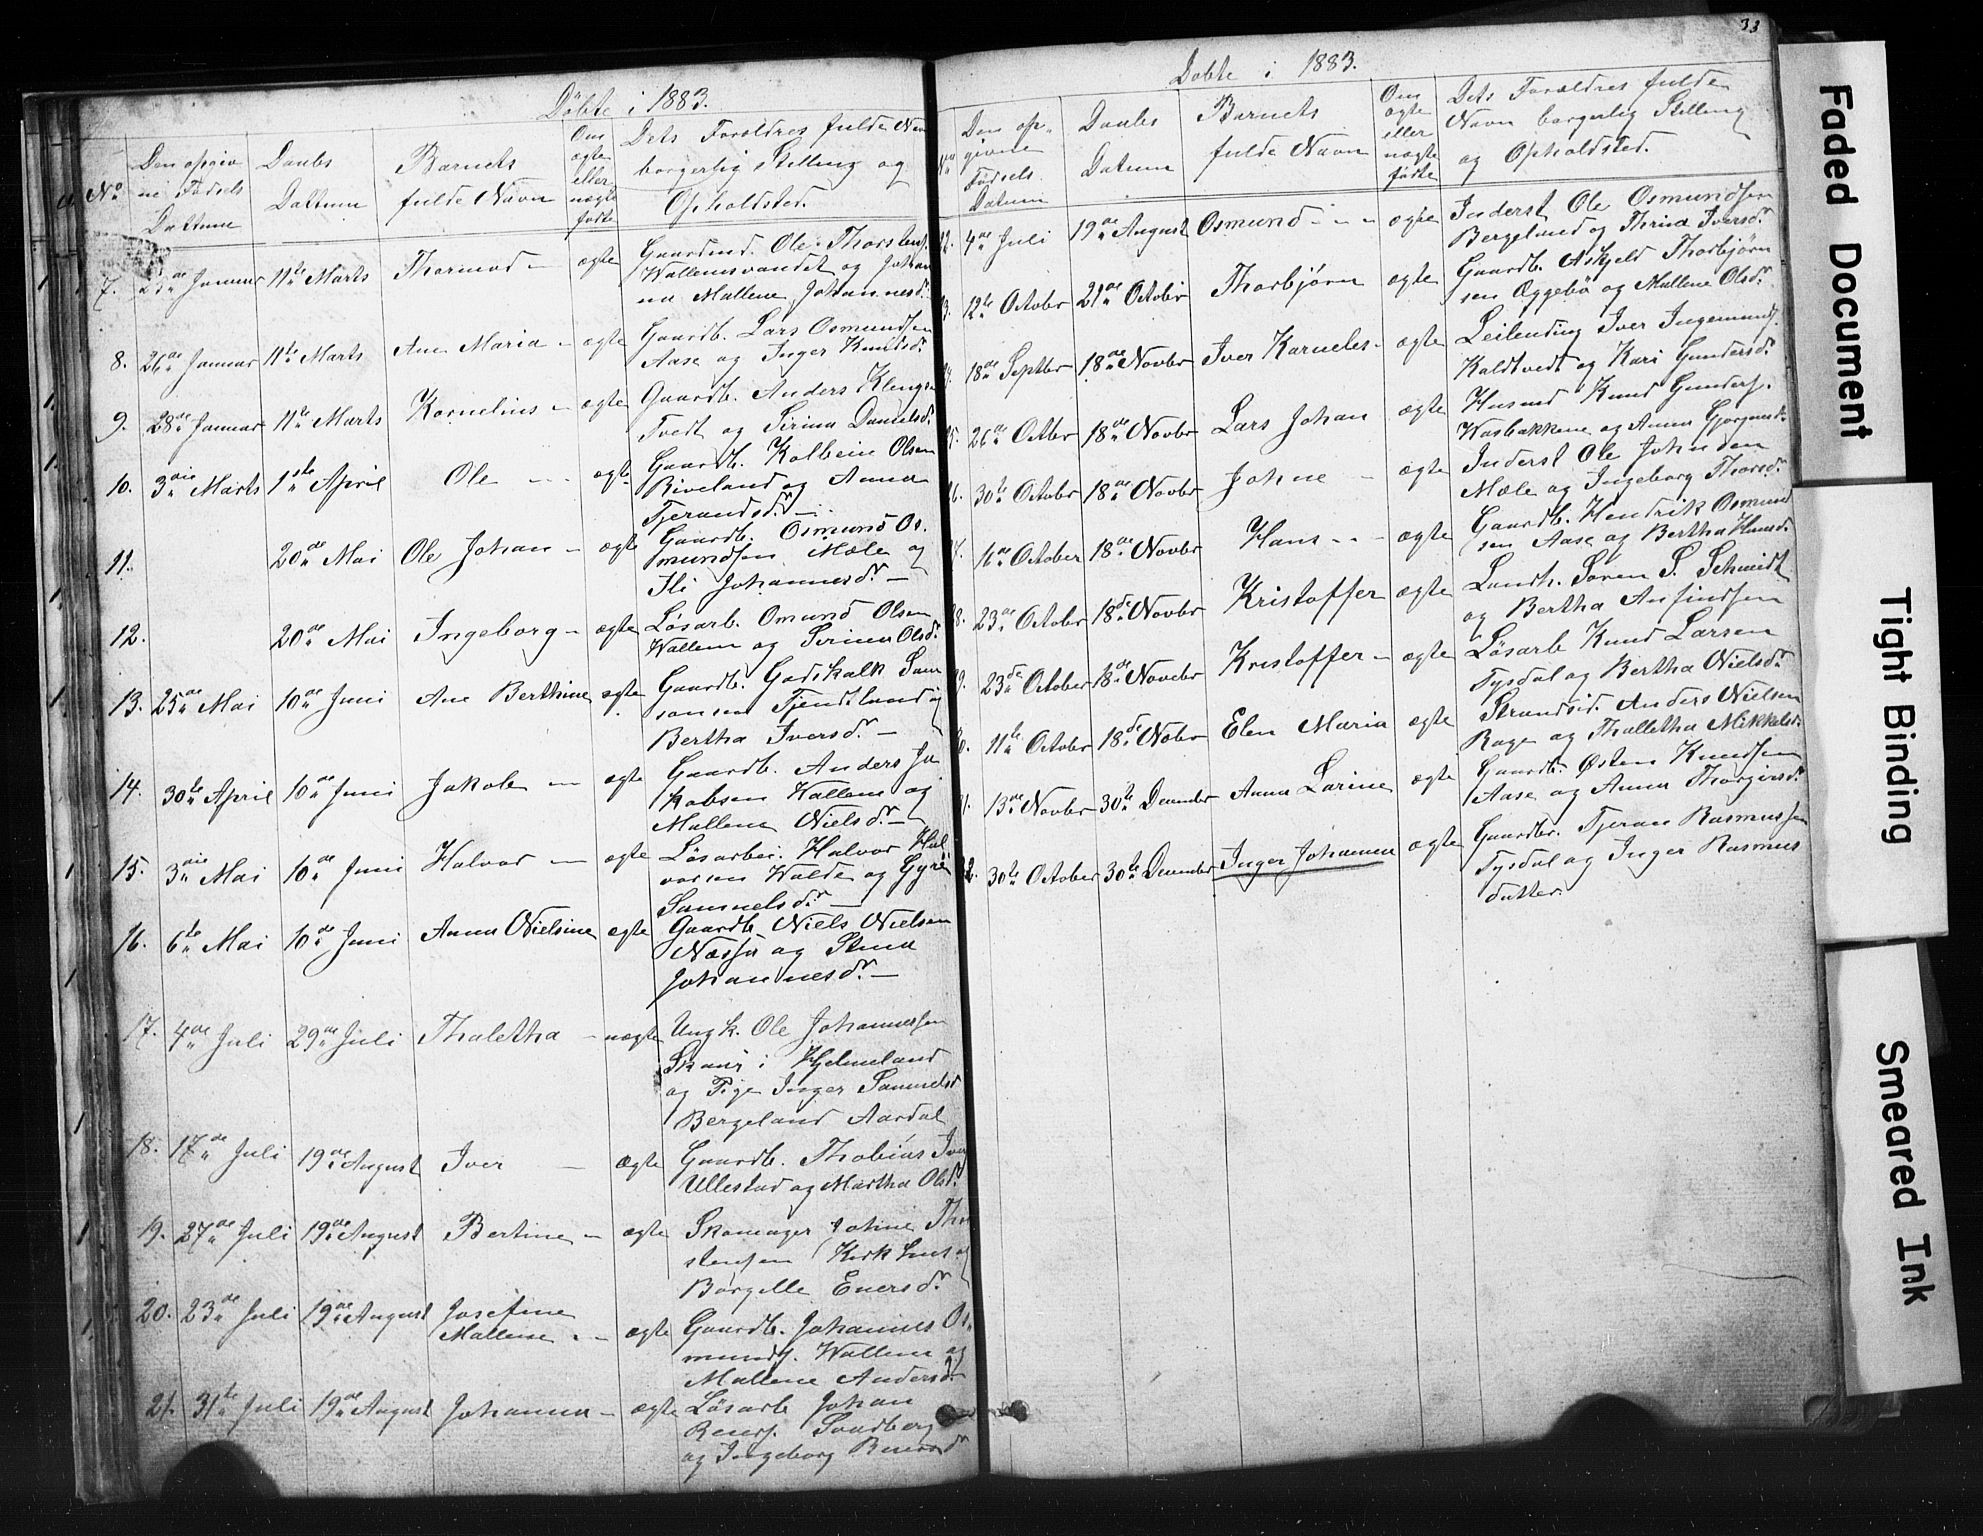 Döbte i 1883.
No
Den opgiv
ne Fødsels
Dattum
Daabs
Dattum
Barnets
fulde Navn
Om
ægte
eller
uægte
fødte
Dets Foroldres fulde Navn
borgerlig Stilling og
Opholdsted.
7. Januar 11te Marts Thormod - ægte Gaardmd. Ole Thorstens.
Wallemsvandet og Johan
na Mallene Johannesd.r
8. 26de Januar 11te Marts Ane Maria - ægte Gaardb. Lars Osmundsen
Aase og Inger Knudsd.r
9. 28de Januar 11te Marts Kornelius - ægte Gaardb. Anders Klengs
Tvedt og Serina Danielsd.r
10. 3die Marts 1ste April Ole - - ægte Gaardb. Kolbein Olsen
Riveland og Anna
Tjerandsd.r -
11. 20de Mai Ole Johan - ægte Gaardb. Osmund Os.
mundsen Mæle og
Ili Johannesd.r -
12. 20de Mai Ingeborg - ægte Løsarb. Omund Olsen
Wallem og Serina Olsd.r
13. 25de Mai 10de Juni Ane Berthine ægte Gaardb. Godskalk Sam
sonsen Tjentland og
Bertha Iversd.r -
14. 30te April 10de Juni Jakob - ægte Gaardb. Anders Ja
kobsen Wallem og
Mallena Nielsd.r -
15. 3die Mai 10de Juni Halvor - ægte Løsarbei. Halvor Hal
vorsen Walde og Gyri
Samuelsd.r -
16. 6te Mai 10de Juni Anna Nielsine ægte Gaardb. Niels Nielsen
Næssa og Stina
Johannesd.r -
17. 4de Juli 29de Juli Thaletha - uægte Ungk. Ole Johannessen
i Hjelmeland
og Pige Inger Samuelsd
Bergeland Aardal
18. 17de Juli 19de August Iver - Ægte Gaardb. Thobias Iver
Ullestad og Martha Olsd.r
19. 27de Juli 19de August Bertine - ægte Skomager Johne Tho
stensen Kirkhus og
Borgille Enersd.r
20. 23de Juli 19de August Josefine
Mallene - ægte Gaardb. Johannes Os.
munds. Wallem og
Mallene Andersd.r
21. 31te Juli 19de August Johanna - ægte Løsarb Johan
Reiers. Sandberg
og Ingeborg Reiersd.r
33
Dobte i 1883.
Den op.
givne
Fødsels
Datum
Daabs
Datum
Barnets
fulde Navn
Om
ægte
eller
uægte
fødte
Dets Foraldres fulde
Navn borgerlig Stilling
og Opholdsted.
4de Juli 19de August Osmund - - - ægte Inderst Ole Osmundsen
Bergeland og Thrina Iversd.r
12te October 21de October Thorbjørn ægte Gaardb. Askjeld Thorbjørn
sen Eggebö og Mallene Olsd.r
18de Septbr 18de Novbr Iver Karneles - ægte Leilending Iver Ingemunds.
Kaldtvedt og Kari Gundersd.r
26de Octbr 18de Novbr Lars Johan ægte Husmd Knud Gunders.
Wasbakkene og Anna
30te Octobr 18de Novbr Johne - ægte Inderst Ole Johnsen
Mæle og Ingeborg Thorsd.r
16de October 18de Novbr Hans - - - ægte Gaardb. Hendrik Osmund
sen Aase og Bertha Hansd.r
23de Octobr 18de Novbr Kristoffer ægte Landh. Søren S. Schmidt
og Bertha Anfindsen
23de October 18de Novebr Kristoffer - ægte Løsarb Knud Larsen
Tysdal og Bertha Nielsd.r
11te Octobr 18de Nobr Elen Maria ægte Strandsid. Anders Nielsen
Rage og Thalletha Mikkelsd.r
13de Novbr 30te December Anna Larine ægte Gaardb. Østen Knudsen
Aase og Anna Thorgersd.r
30te October 30te December Inger Johanna ægte Gaardbr. Tjeran Rasmussen
Tysdal og Inger Rasmus
datter
Faded Document
Tight Binding
Smeared Ink